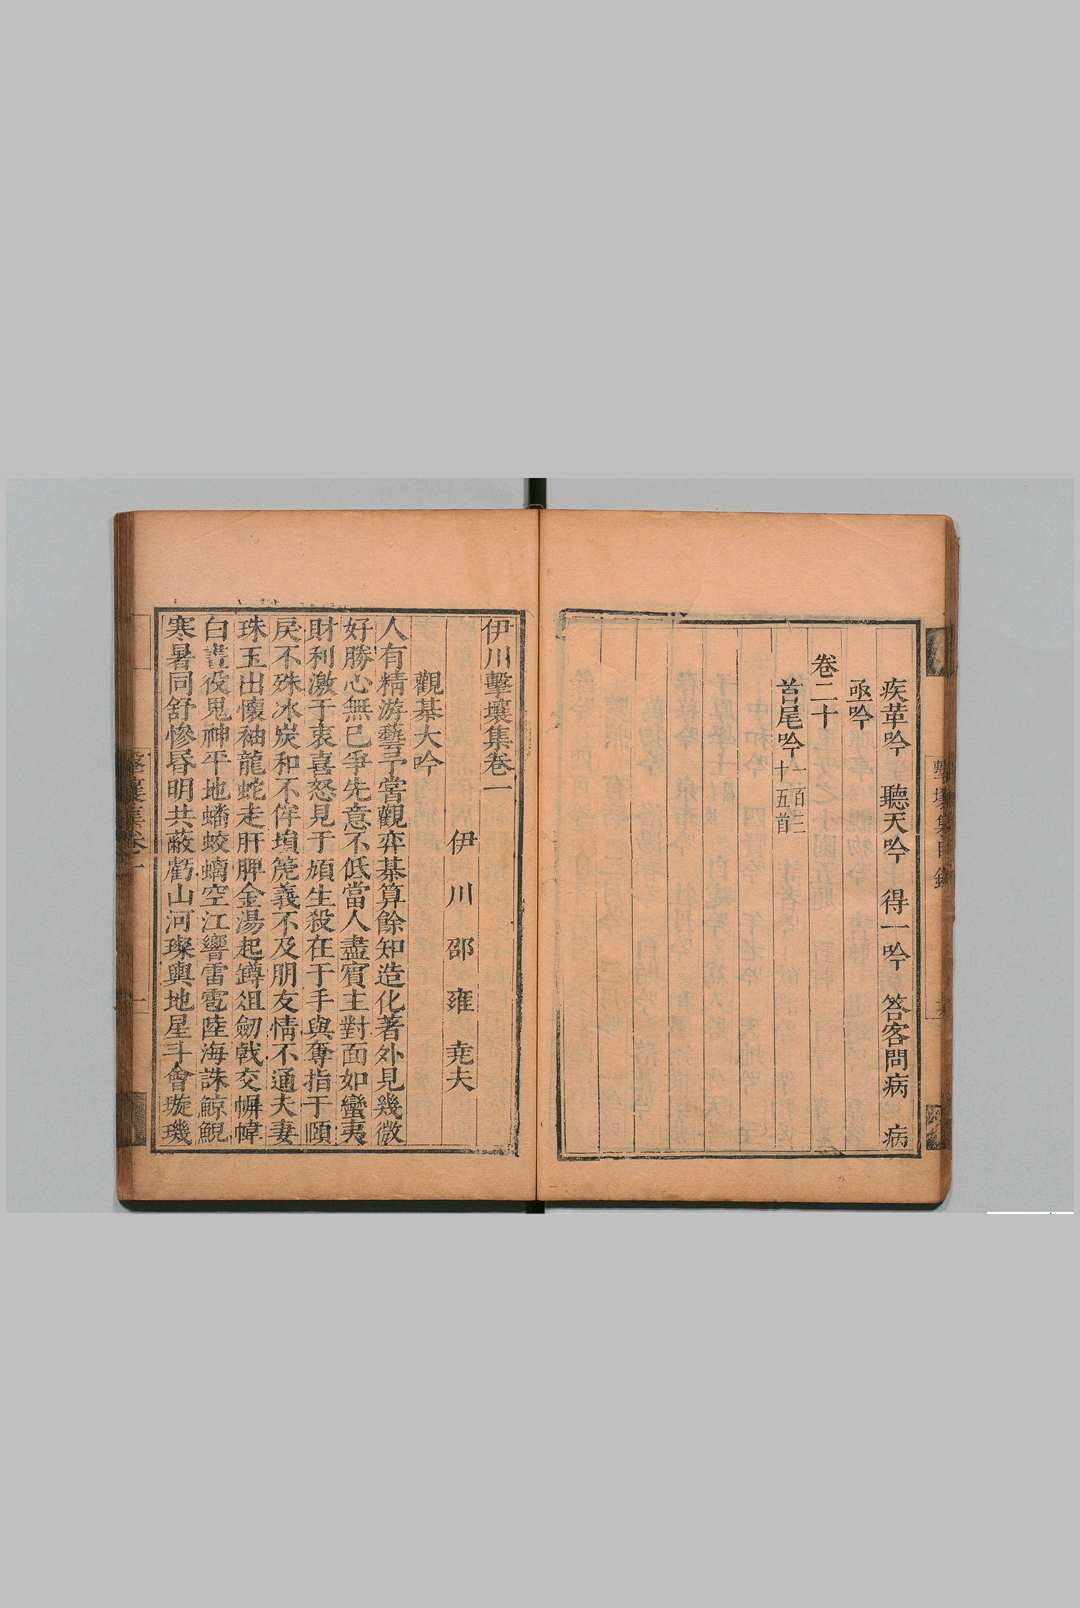 疾革吟 聽天吟 得一吟 答客問病 病
亟吟
卷二十
首尾吟 一百三十五首
伊川擊壤集卷一
伊川邵雍堯夫
觀棊大吟
人有精游藝予嘗觀弈棊算餘知造化著外見幾微
好勝心無已爭先意不低當人盡賓主對面如蠻夷
財利激于衷喜怒見于頄生殺在于手與奪指于頤
戾不殊冰炭和不侔塤篪義不及朋友情不通夫妻
珠玉出懷袖龍蛇走肝脾金湯起鐏俎劒戟交幈幃
白晝役鬼神平地蟠蛟螭空江響雷雹陸海誅鯨鯢
寒暑同舒慘昏明共蔽虧山河璨輿地星斗會璇璣
擊壤集卷一